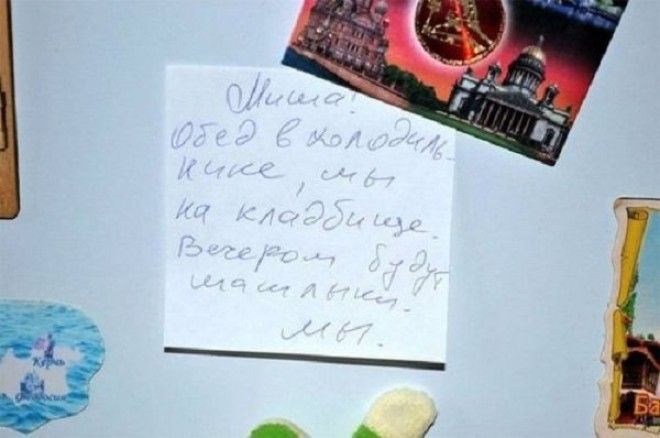 Миша!
Обед в холодиль-
нике, мы
на кладбище.
Вечером будут
шашлыки.
Мы.
Керчь
Феодосия
Ба